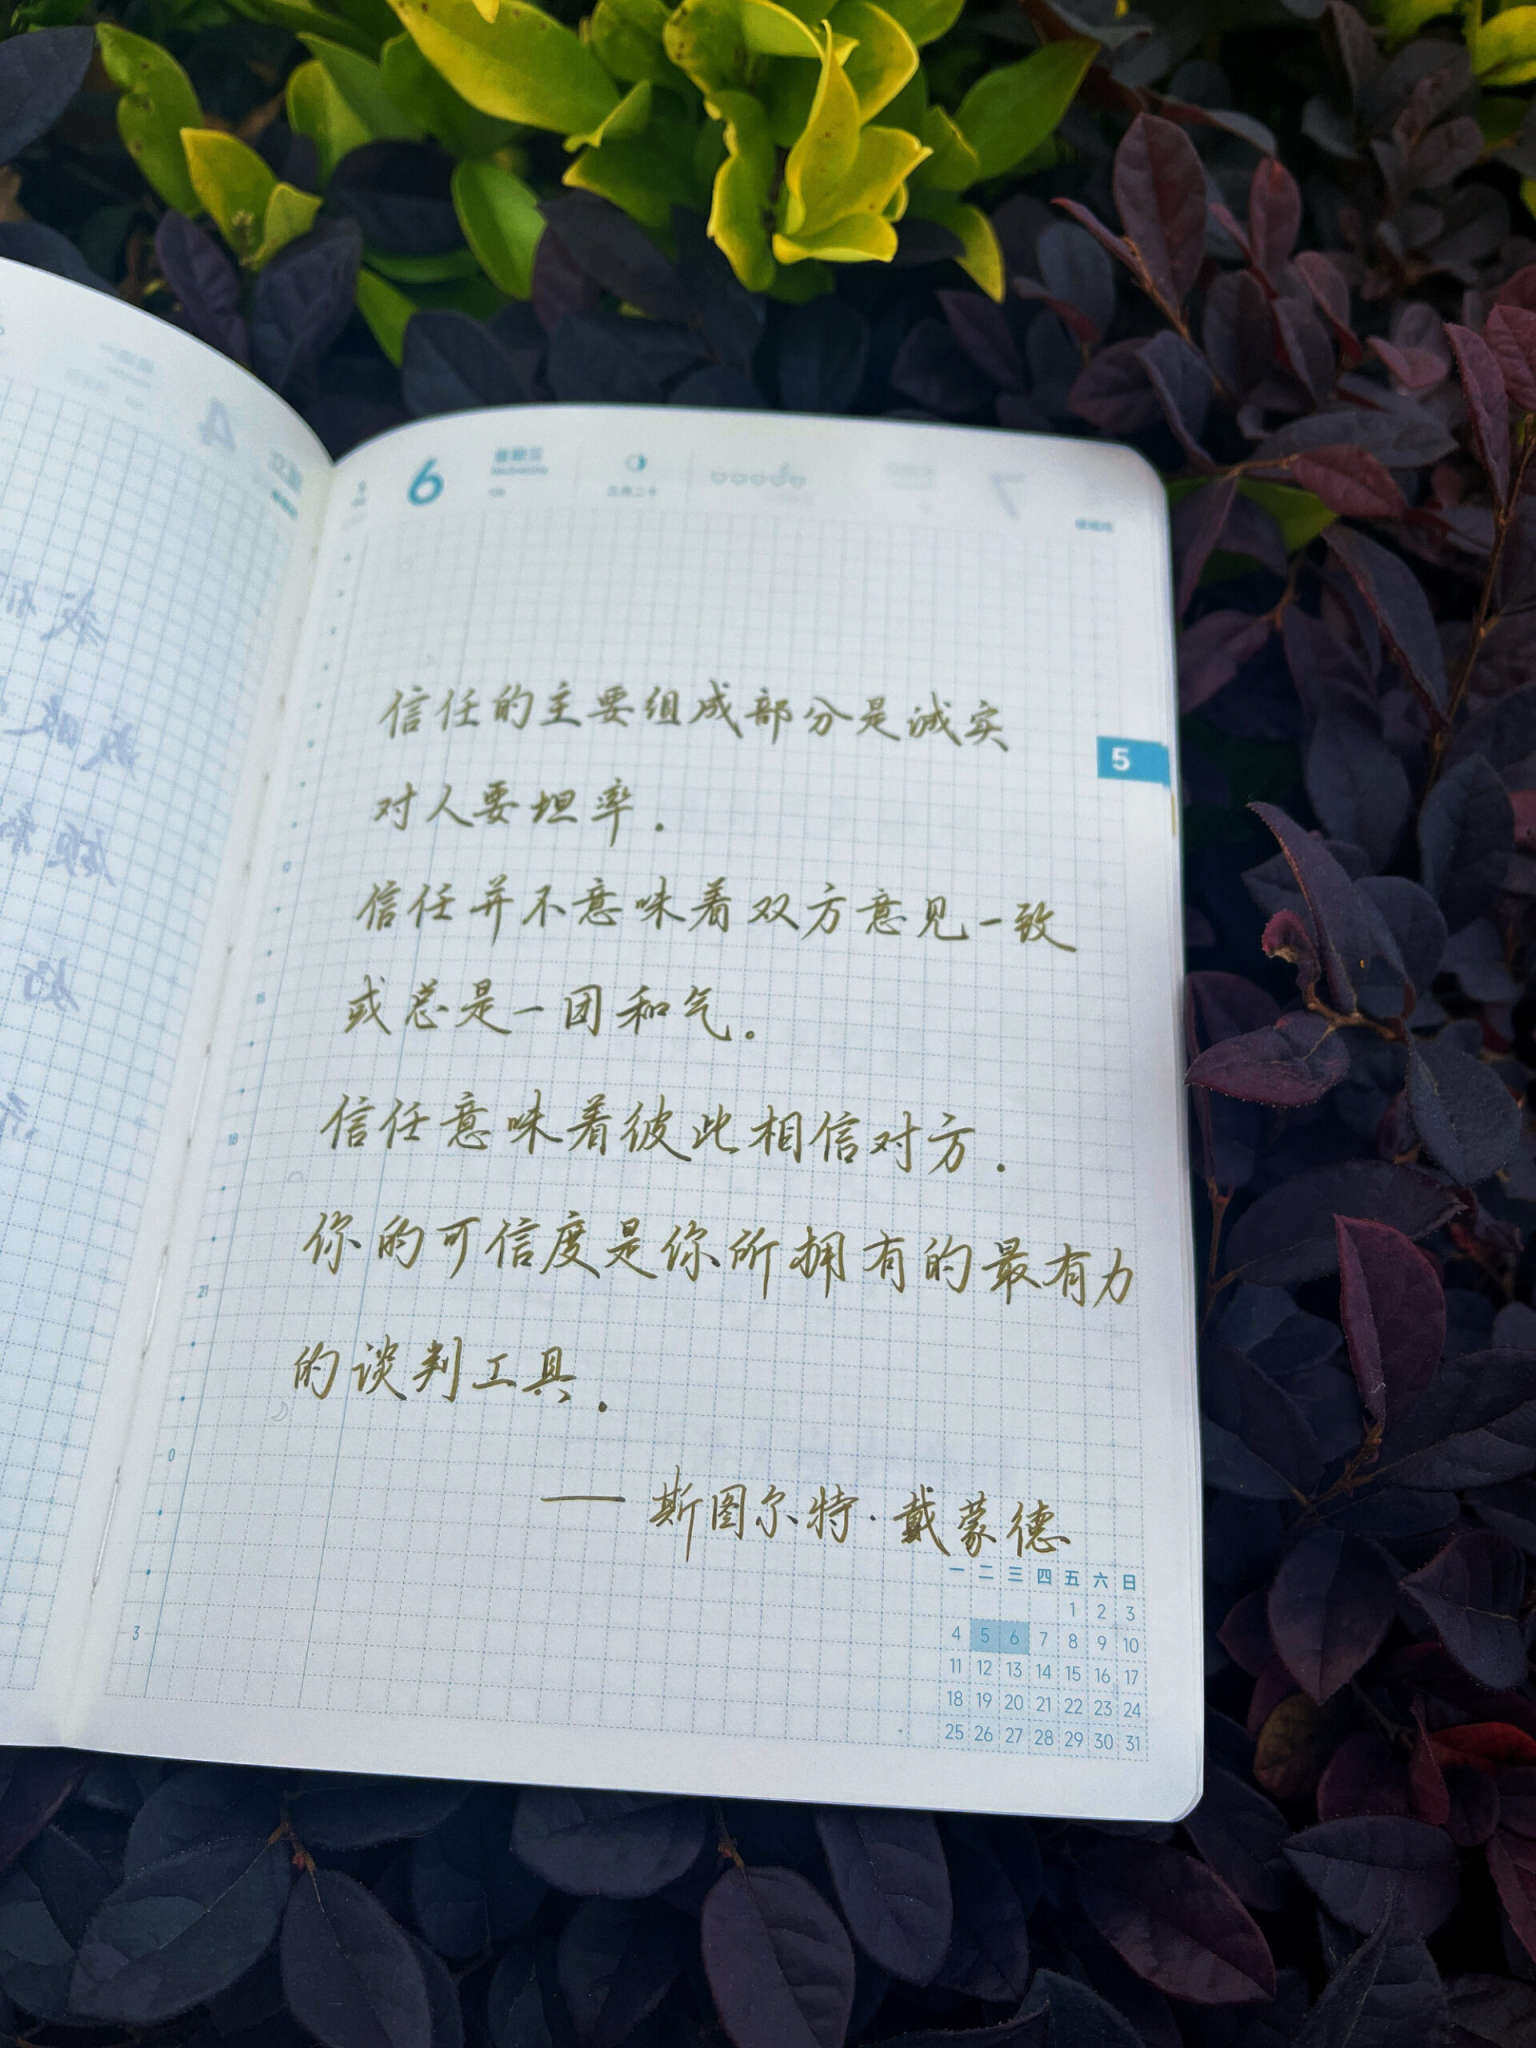 6
星期三
Wednesday
三月二十
7
信任的主要组成部分是诚实
5
对人要坦率.
信任并不意味着双方意见一致
或总是一团和气。
信任意味着彼此相信对方.
你的可信度是你所拥有的最有力
的谈判工具.
—— 斯图尔特·戴蒙德
9
18
21
0
3
一 二 三 四 五 六 日
1 2 3
4 5 6 7 8 9 10
11 12 13 14 15 16 17
18 19 20 21 22 23 24
25 26 27 28 29 30 31